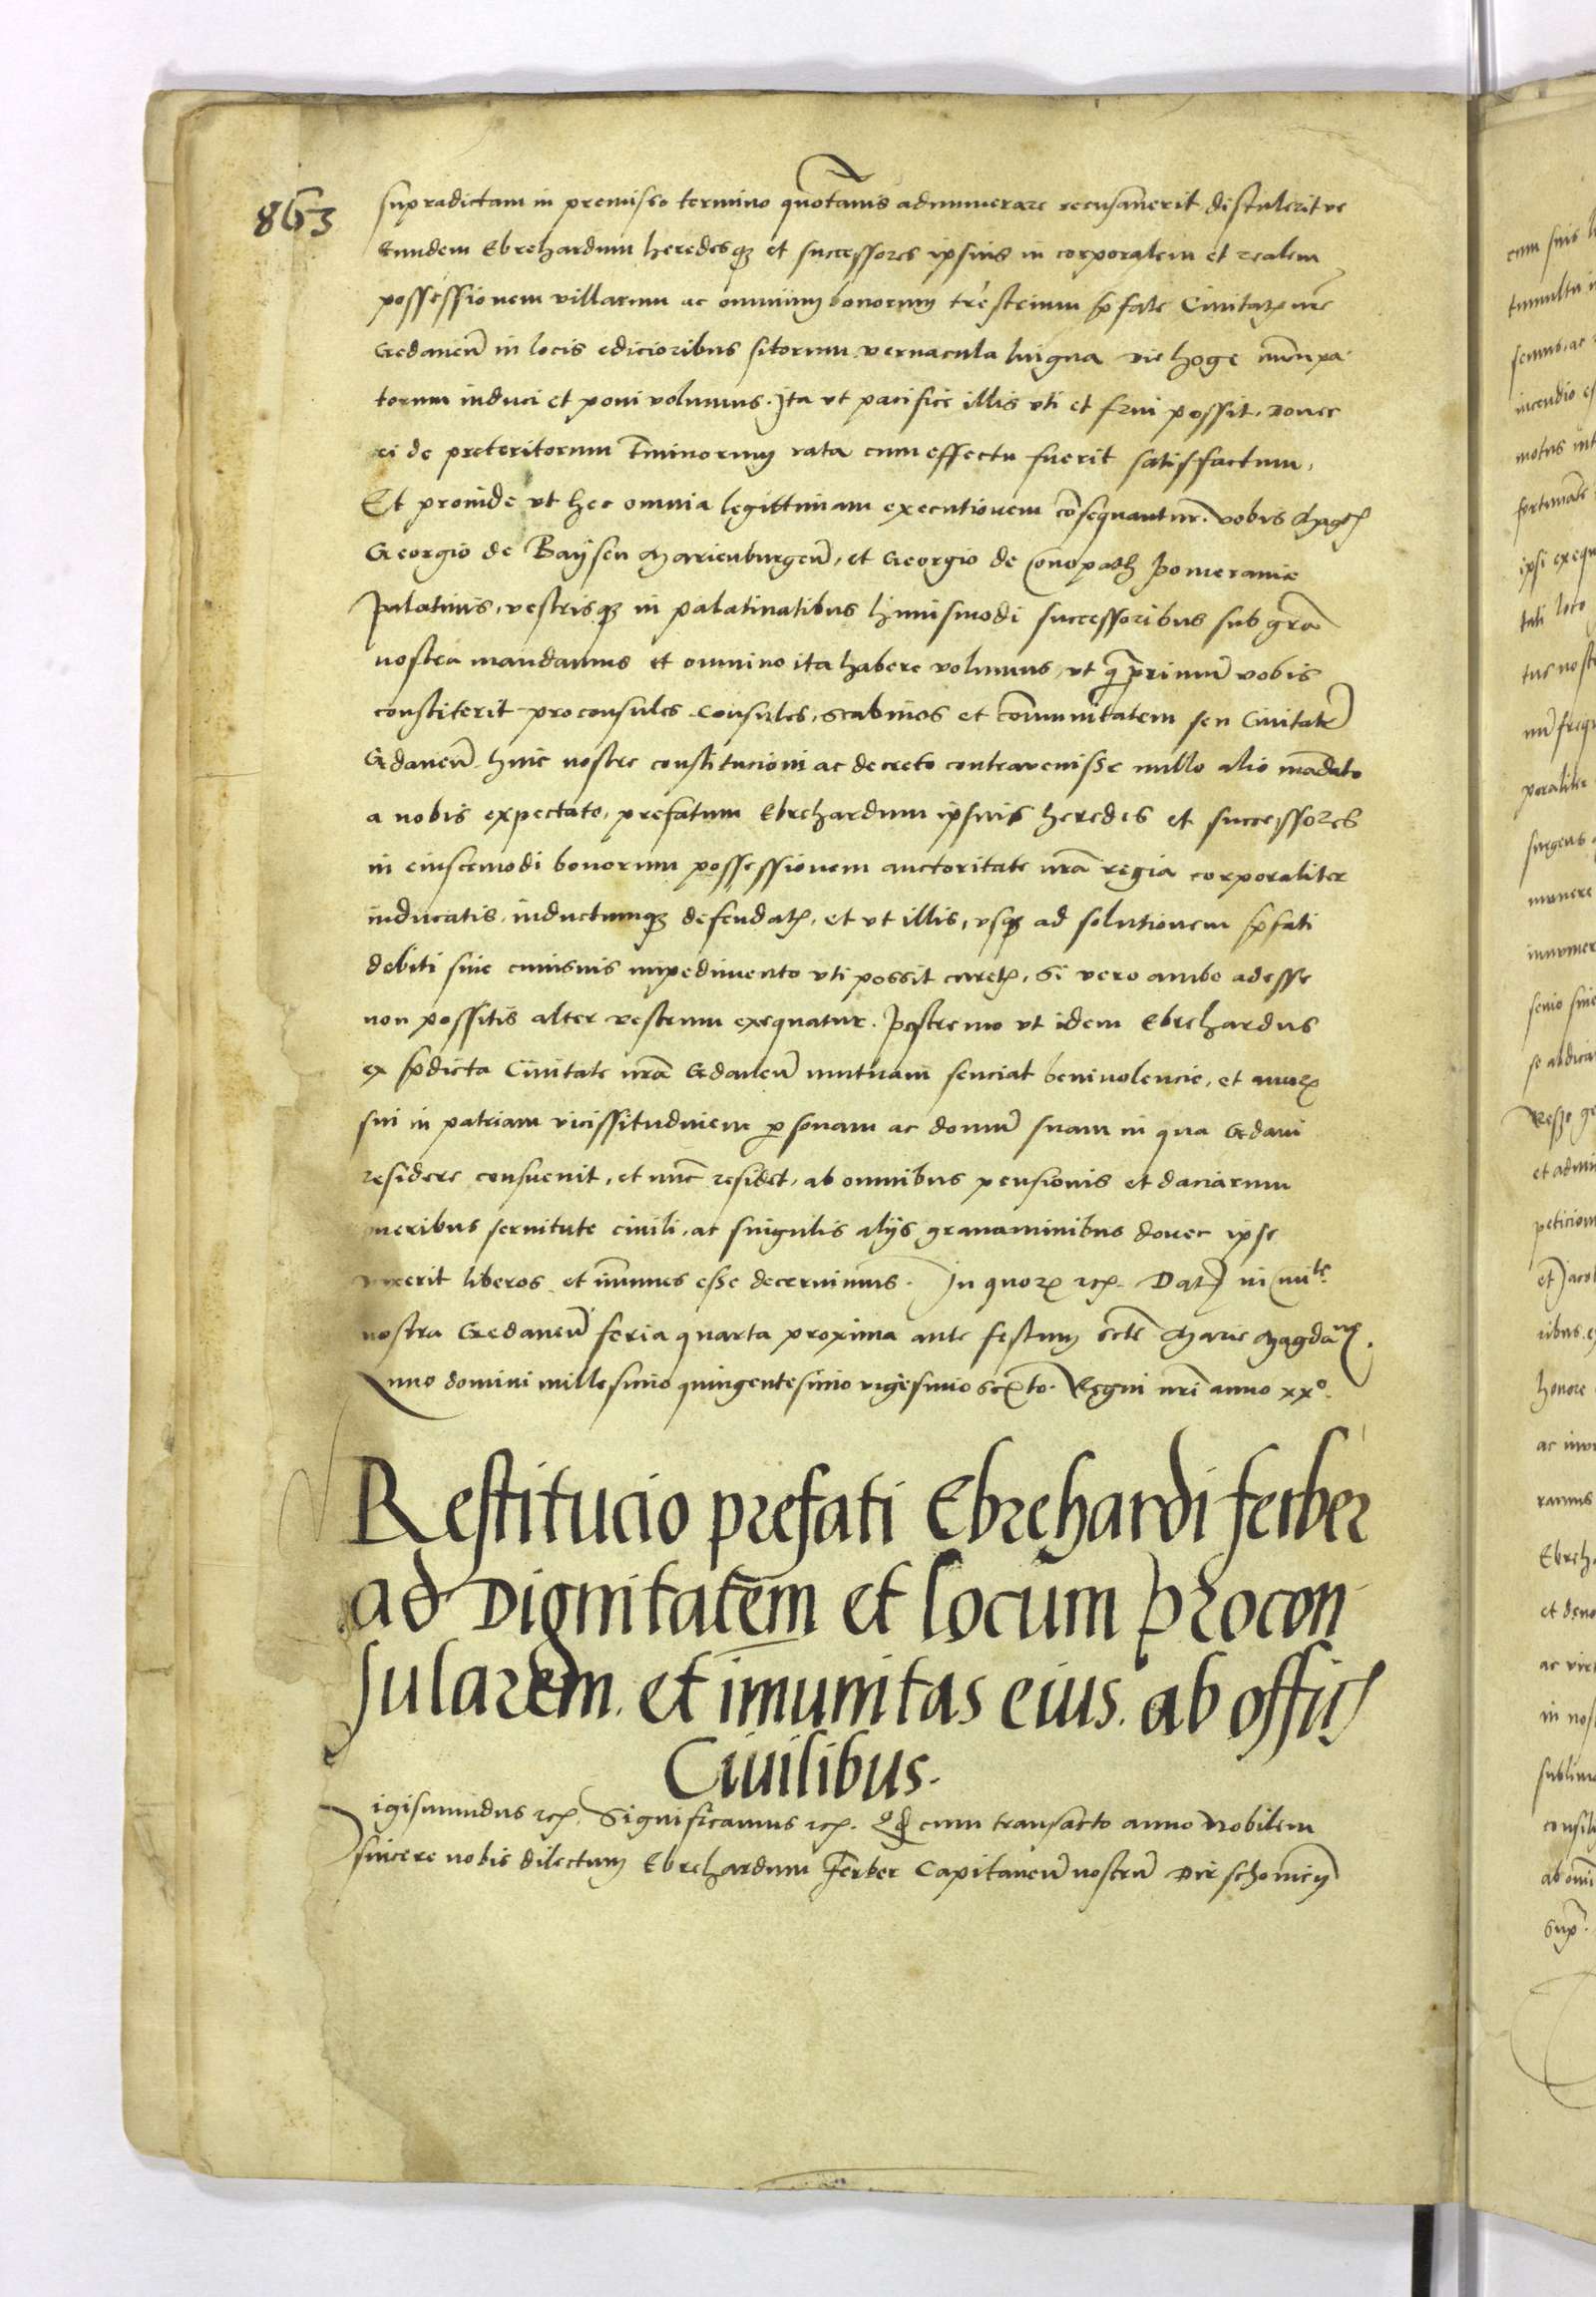 863
supradictam in premisso termino quotannis adnumerare recusaverit distulerit ve
Eundem Ebrehardum heredesqȝ et successores ipsius in corporalem et realem
possessionem villarum ac omnium bonorum trestrium p̄fate Civitatꝭ nr̄e
Gedaneñ in locis edicioribus sitorum vernacula lingua die hoge nūnpa-
torum induci et poni volumus. Ita vt pacifice illis vti et frui possit, donec
ei de preteritorum t̄minorum rata cum effectu fuerit satisfactum,
Et proinde vt hec omnia legittimam executionem cōsequantur. vobis Magcꝭ
Georgio de Baysen Marienburgeñ, et Georgio de Conopath Pomeranie
Palatinis, vestrisqȝ in palatinatibus huiusmodi successoribus sub grã
nostra mandamus et omnino ita habere volumus, vt q̄ primū vobis
constiterit proconsules Consules, scabinos et Cōmunitatem seu Civitatē
Gedaneñ huic nostre constitucioni ac decreto contravenisse nullo alio mādato
a nobis expectato, prefatum Ebrehardum ipsius heredes et successores
in eiuscemodi bonorum possessionem auctoritate nrā regia corporaliter
inducatis, inductumqȝ defendatꝭ, et vt illis, vsqȝ ad solutionem p̄fati
debiti sine cuiusvis impedimento vti possit curetꝭ, Si vero ambo adesse
non possitis alter vestrum exequatur. Postremo vt idem Ebrehardus
ex p̄dicta Civitate nrā Gdaneñ mutuam senciat benivolencie, et amorꝭ
sui in patriam vicissitudinem p̱sonam ac domū suam in qua Gdani
residere consuevit, et nūc residet, ab omnibus pensionis et daciarum
oneribus servitute civili, ac singulis alijs gravaminibus donec ipse
vixerit liberos et īmunes esse decernimus. In quorꝭ rcꝭ. Datꝭ in Civitē
nostra Gedaneñ feria quarta proxima ante festum scte Marie Magdanꝭ.
Anno domini millesimo quingentesimo vigesimo sexto. Regni nrī anno xxº.
Restitucio prefati Ebrehardi ferber
ad Dignitatem et locum procon
sularem. et imunitas eius. ab offijs
Civilibus.
Sigismundus rcꝭ. Significamus rcꝭ. Qđ cum transacto anno Nobilem
sincere nobis dilectum Ebrehardum Ferber Capitaneū nostrū Dirschovieñ